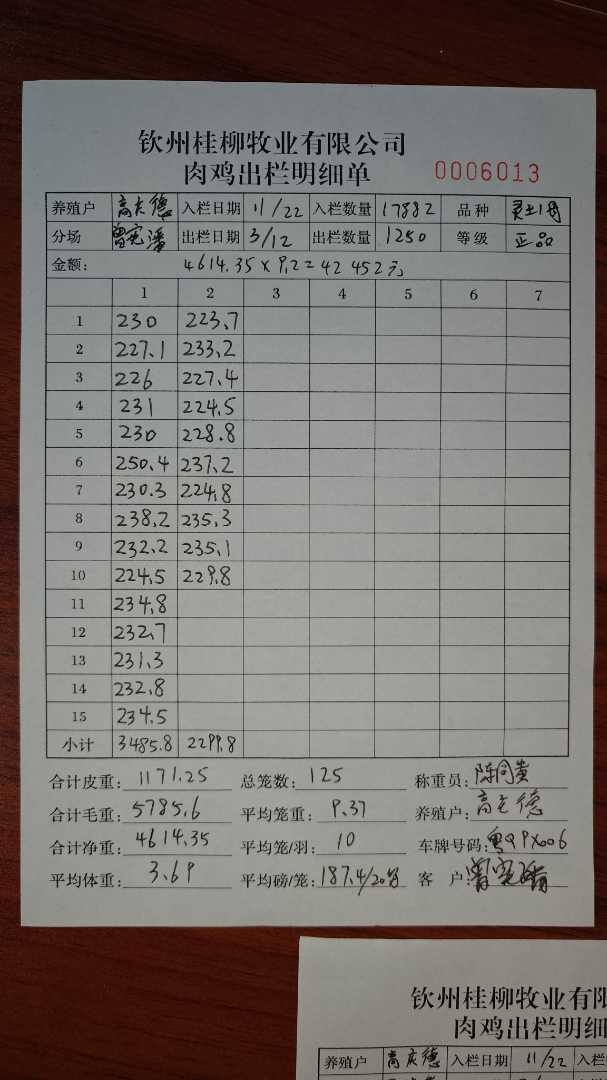 钦州桂柳牧业有限公司
肉鸡出栏明细单 0006013
养殖户 高庆德 入栏日期 11/22 入栏数量 17882 品种
分场 出栏日期 3/12 出栏数量 1250 等级 正品
金额: 4614.35×9.2=42452元
1 2 3 4 5 6 7
1 230 223.7
2 227.1 233.2
3 226 227.4
4 231 224.5
5 230 228.8
6 250.4 237.2
7 230.3 224.8
8 238.2 235.3
9 232.2 235.1
10 224.5 229.8
11 234.8
12 232.7
13 231.3
14 232.8
15 234.5
小计 3485.8 2299.8
合计皮重: 1171.25 总笼数: 125 称重员:
合计毛重: 5785.6 平均笼重: 9.37 养殖户: 高庆德
合计净重: 4614.35 平均笼/羽: 10 车牌号码: 粤Q9X006
平均体重: 3.69 平均磅/笼: 187.4/20 客 户:
钦州桂柳牧业有限
肉鸡出栏明细
养殖户 高庆德 入栏日期 11/22 入栏